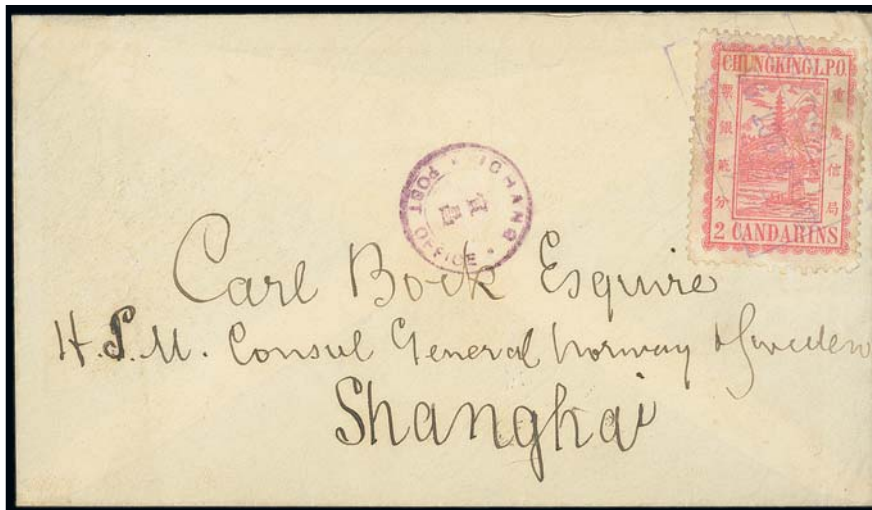 CHUNGKING L.P.O.
重慶信局
聚銀貳分
2 CANDARINS
ICHANG
POST OFFICE
Carl Bock Esquire
H.S.M. Consul General Norway & Sweden
Shanghai